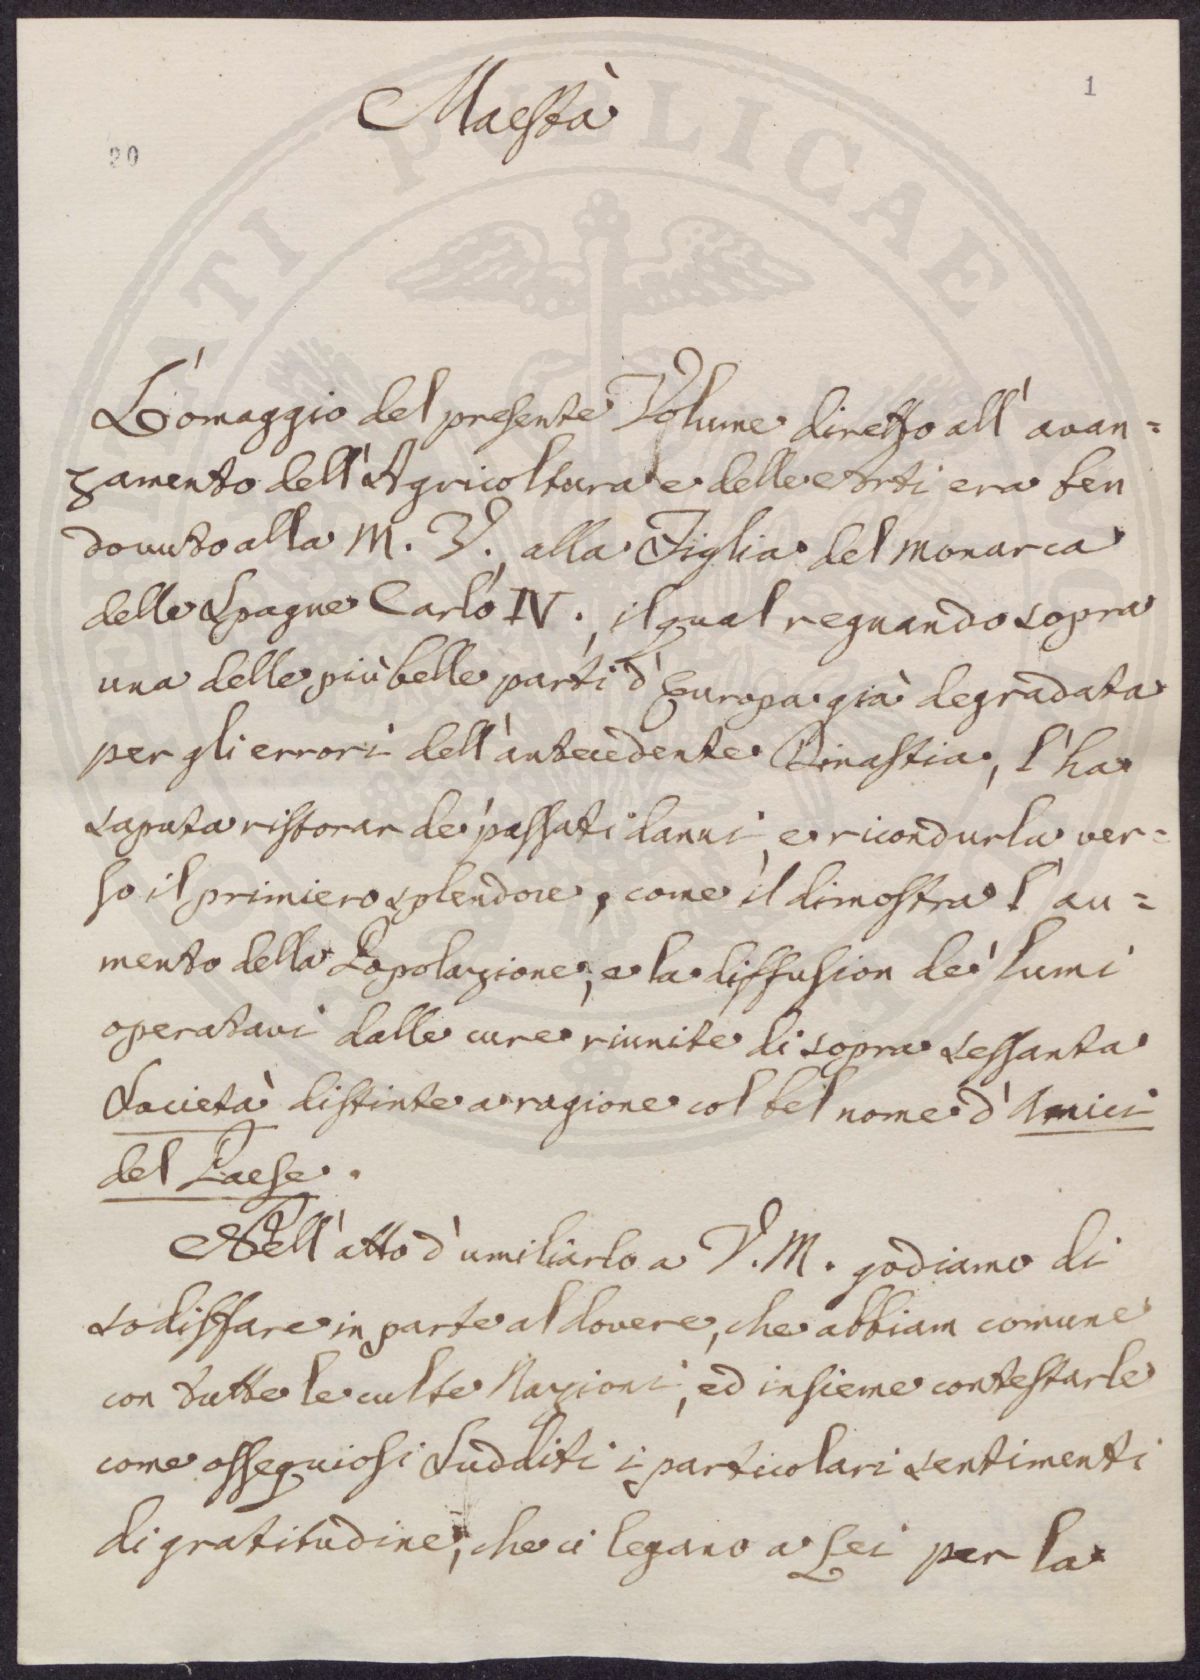 1
Maestà
20
L'omaggio del presente Volume diretto all' avan=
zamento dell'Agricoltura e delle Arti era ben
dovuto alla M. V., alla Figlia del Monarca
delle Spagne Carlo IV., il qual regnando sopra
una delle più belle parti d'Europa già degradata
per gli errori dell'antecedente Dinastia, l'ha
saputa ristorar de' passati danni, e ricondurla ver=
so il primiero splendore, come il dimostra l'au=
mento della Popolazione, e la diffusion de' lumi
operatavi dalle cure riunite di sopra sessanta
Società distinte a ragione col bel nome d'Amici
del Paese.
Nell'atto d'umiliarlo a V. M. godiamo di
sodisfare in parte al dovere, che abbiam comune
con tutte le culte Nazioni, ed insieme contestarle
come ossequiosi Sudditi i particolari sentimenti
di gratitudine, che ci legano a Lei per la